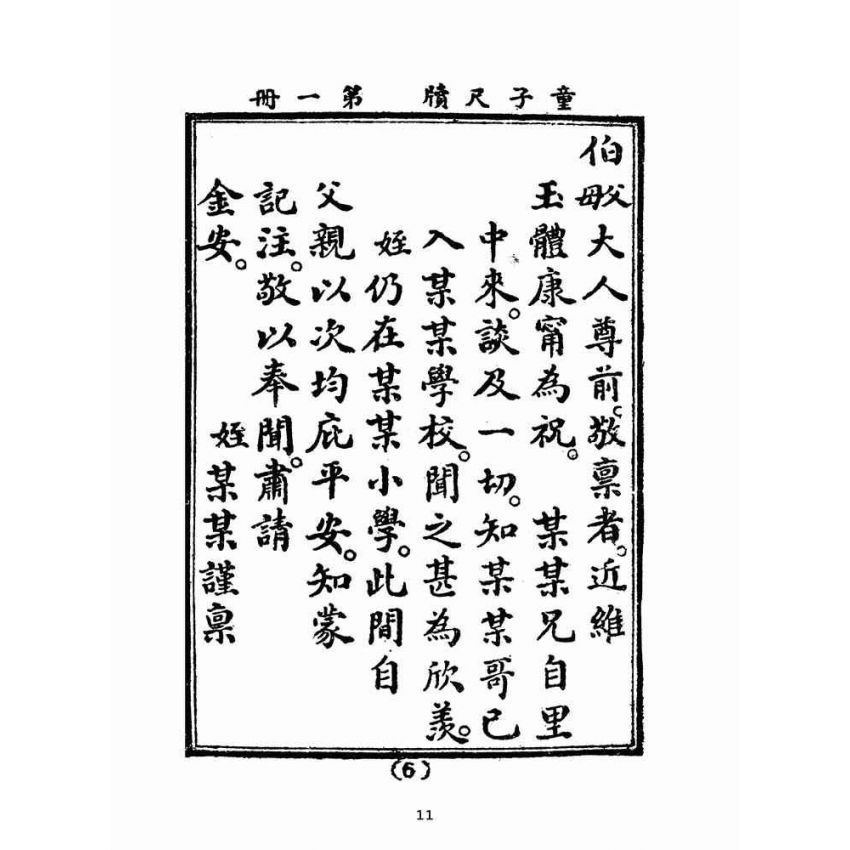 童子尺牘　第一冊
伯父母大人尊前。敬稟者。近維
玉體康甯為祝。　某某兄自里
中來。談及一切。知某某哥已
入某某學校。聞之甚為欣羨。
姪仍在某某小學。此間自
父親以次均庇平安。知蒙
記注。敬以奉聞。肅請
金安。　姪某某謹稟
(6)
11